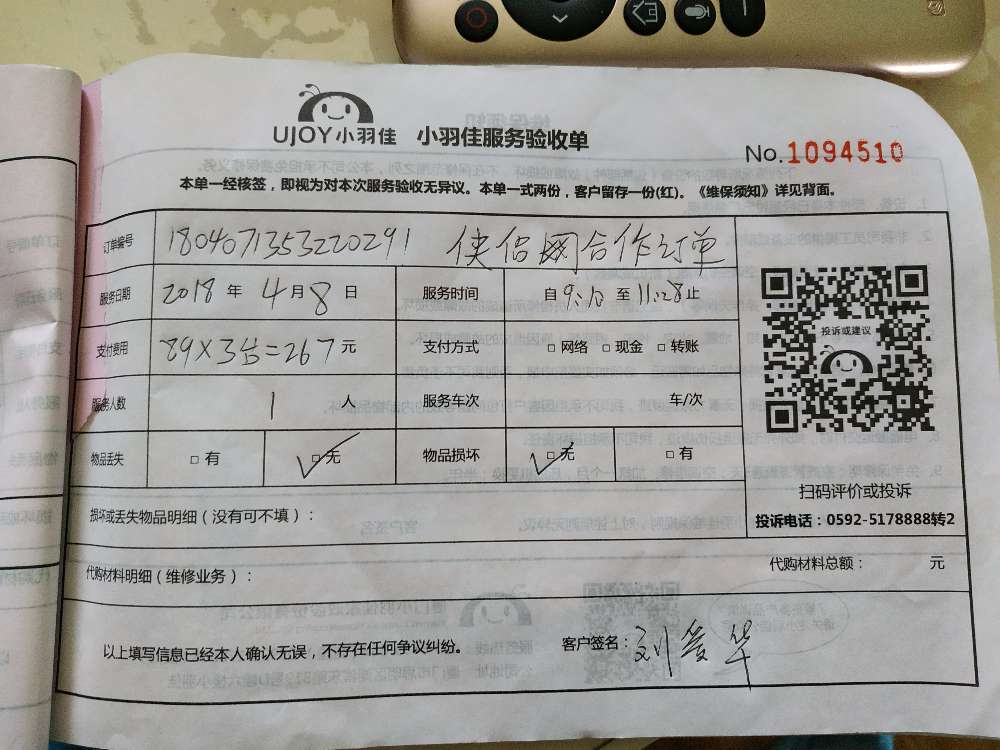 UJOY小羽佳 小羽佳服务验收单
No.1094510
本单一经核签，即视为对本次服务验收无异议。本单一式两份，客户留存一份(红)。《维保须知》详见背面。
订单编号 1804071353220291 侠侣网合作订单
服务日期 2018 年 4 月 8 日 服务时间 自 9:10 至 11:28 止
支付费用 89×3台=267 元 支付方式 □ 网络 □ 现金 □ 转账
服务人数 1 人 服务车次 车/次
物品丢失 □ 有 □ 无 物品损坏 □ 无 □ 有
投诉或建议
扫码评价或投诉
投诉电话：0592-5178888转2
损坏或丢失物品明细（没有可不填）：
代购材料明细（维修业务）： 代购材料总额： 元
以上填写信息已经本人确认无误，不存在任何争议纠纷。 客户签名：刘爱华